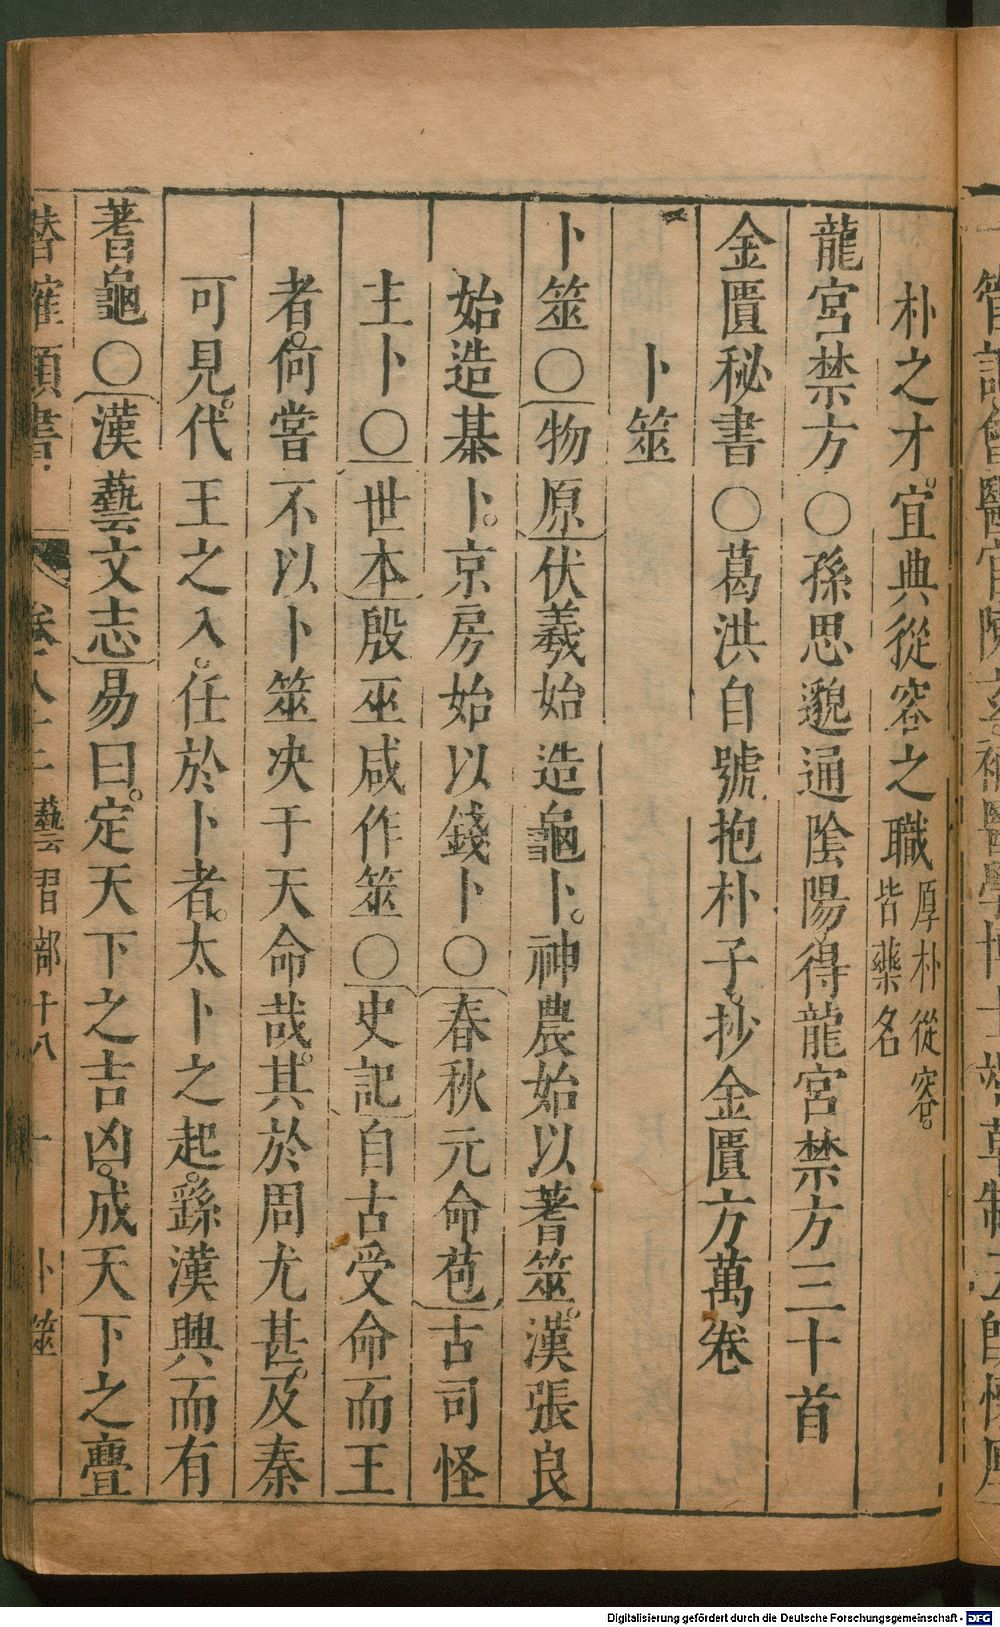 朴之才。宜典從容之職厚朴從容。皆藥名
龍宮禁方○孫思邈通陰陽得龍宮禁方三十首
金匱秘書○葛洪自號抱朴子。抄金匱方萬卷
卜筮
卜筮○物原伏羲始造龜卜。神農始以蓍筮。漢張良
始造棊卜。京房始以錢卜○春秋元命苞古司怪
主卜○世本殷巫咸作筮○史記自古受命而王
者。何嘗不以卜筮决于天命哉。其於周尤甚。及秦
可見。代王之入。任於卜者。太卜之起。繇漢興而有
蓍龜○漢藝文志易曰。定天下之吉凶。成天下之亹
潛確類書 卷八十二 藝習部十八 卜筮
Digitalisierung gefördert durch die Deutsche Forschungsgemeinschaft - DFG